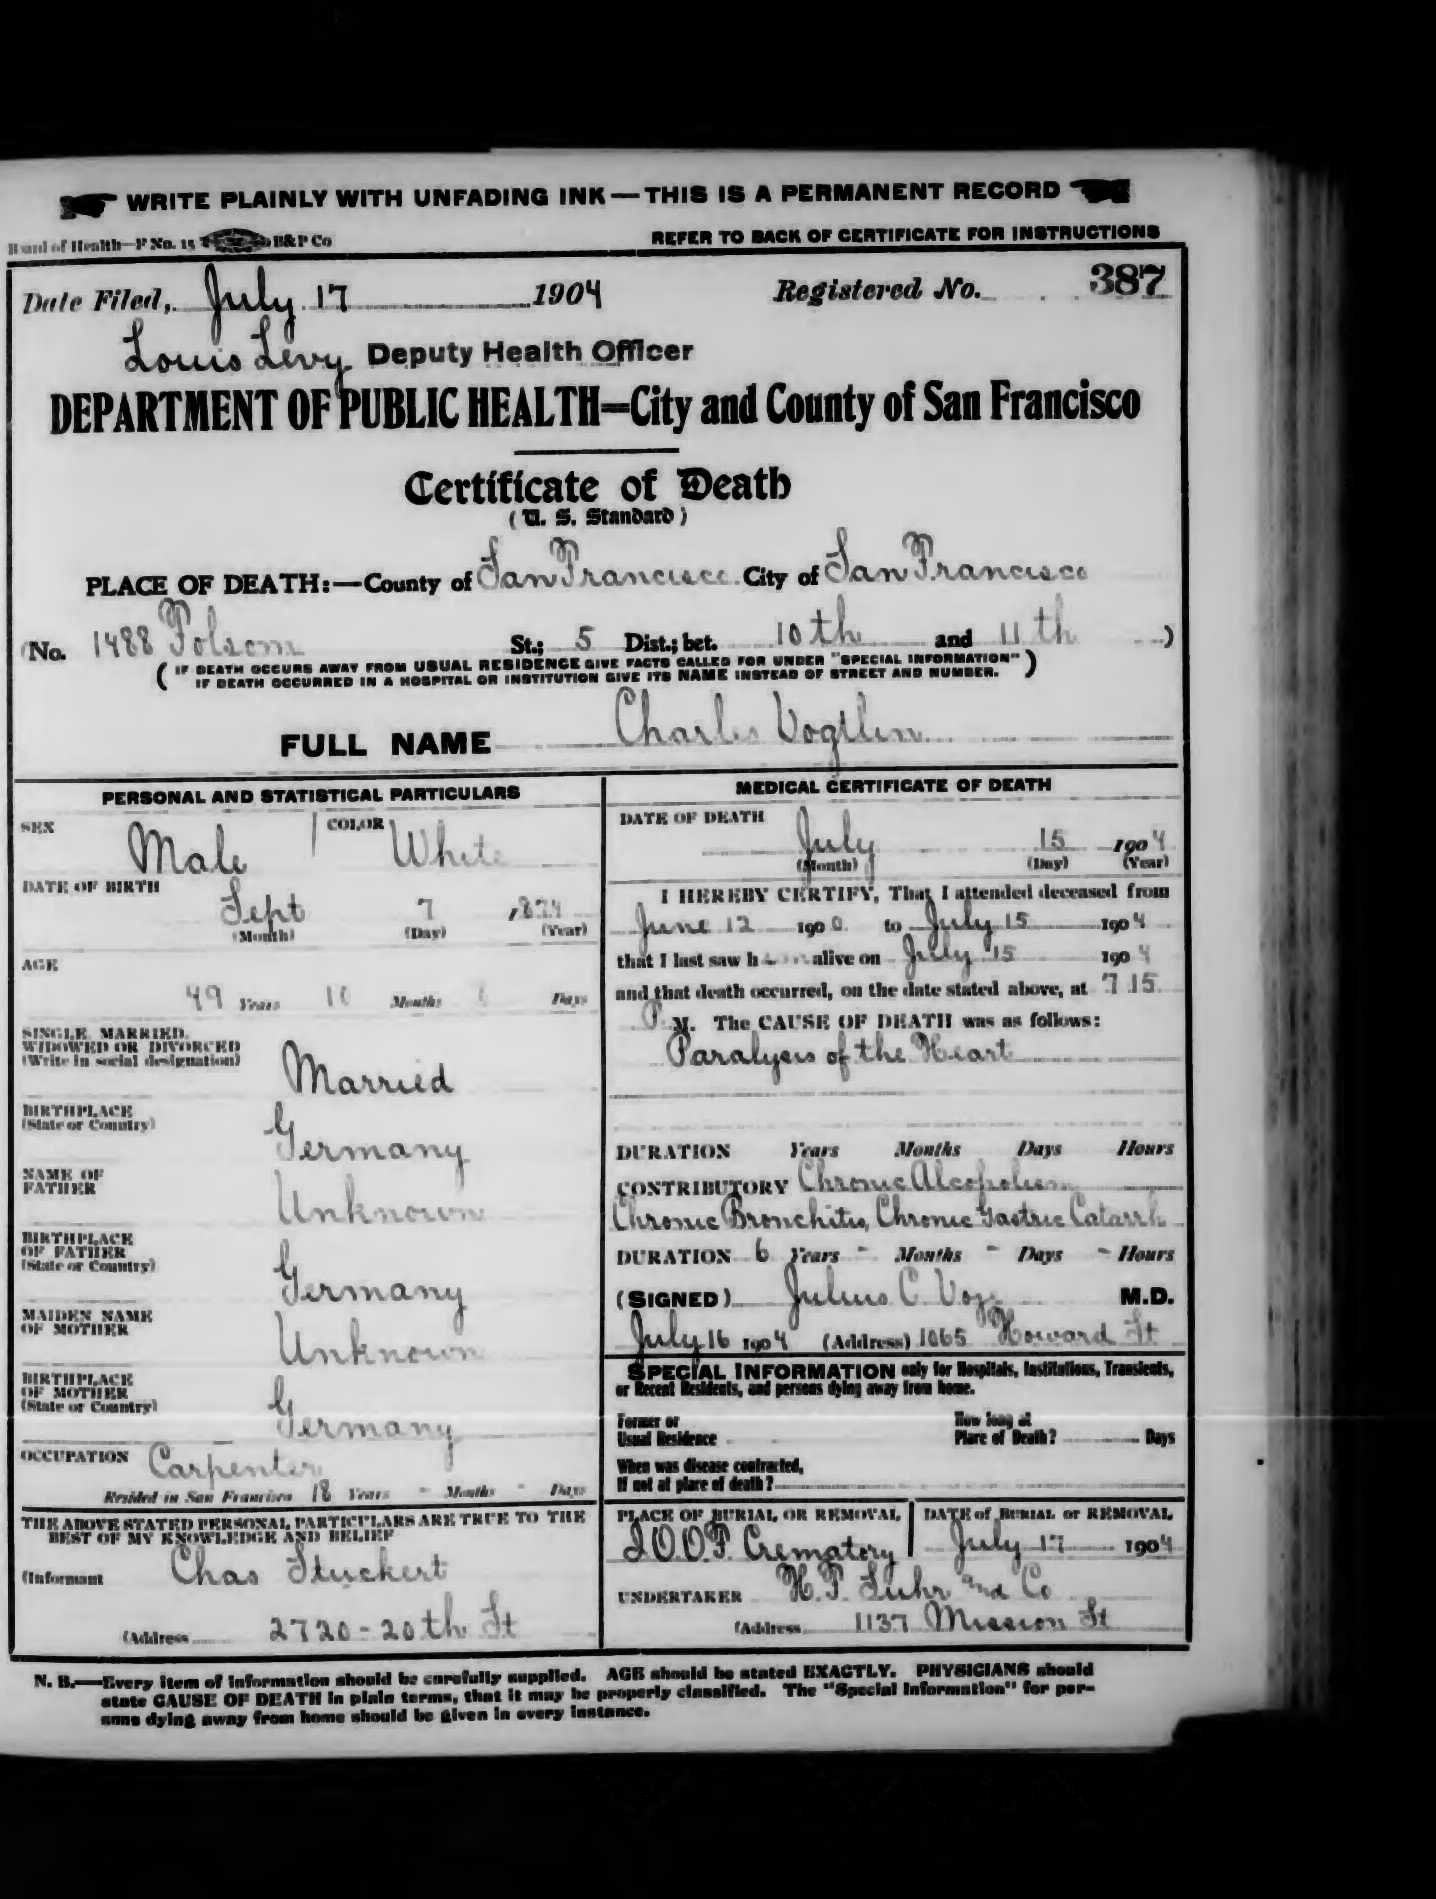 WRITE PLAINLY WITH UNFADING INK — THIS IS A PERMANENT RECORD
Board of Health—F No. 15 B&P Co
REFER TO BACK OF CERTIFICATE FOR INSTRUCTIONS
Date Filed, July 17 1904 Registered No. 387
Louis Levy Deputy Health Officer
DEPARTMENT OF PUBLIC HEALTH—City and County of San Francisco
Certificate of Death
(U. S. Standard)
PLACE OF DEATH:—County of San Francisco City of San Francisco
(No. 1488 Folsom St.; 5 Dist.; bet. 10th and 11th )
( IF DEATH OCCURS AWAY FROM USUAL RESIDENCE GIVE FACTS CALLED FOR UNDER "SPECIAL INFORMATION" )
IF DEATH OCCURRED IN A HOSPITAL OR INSTITUTION GIVE ITS NAME INSTEAD OF STREET AND NUMBER.
FULL NAME Charles Vogtlin
PERSONAL AND STATISTICAL PARTICULARS
SEX Male COLOR White
DATE OF BIRTH
Sept 7
(Month) (Day) (Year)
AGE
49 Years 10 Months Days
SINGLE, MARRIED,
WIDOWED OR DIVORCED
(Write in social designation)
Married
BIRTHPLACE
(State or Country)
Germany
NAME OF
FATHER
Unknown
BIRTHPLACE
OF FATHER
(State or Country)
Germany
MAIDEN NAME
OF MOTHER
Unknown
BIRTHPLACE
OF MOTHER
(State or Country)
Germany
OCCUPATION Carpenter
Resided in San Francisco 18 Years - Months - Days
THE ABOVE STATED PERSONAL PARTICULARS ARE TRUE TO THE
BEST OF MY KNOWLEDGE AND BELIEF
(Informant Chas Stuckert
(Address 2720-20th St
MEDICAL CERTIFICATE OF DEATH
DATE OF DEATH
July 15 1904
(Month) (Day) (Year)
I HEREBY CERTIFY, That I attended deceased from
June 12 1900 to July 15 1904
that I last saw h alive on July 15 1904
and that death occurred, on the date stated above, at 7 15
P M. The CAUSE OF DEATH was as follows:
Paralysis of the Heart
DURATION Years Months Days Hours
CONTRIBUTORY Chronic Alcoholism
Chronic Bronchitis, Chronic Gastric Catarrh
DURATION 6 Years - Months - Days - Hours
(SIGNED) Julius C. M.D.
July 16 1904 (Address) 1065 Howard St
SPECIAL INFORMATION only for Hospitals, Institutions, Transients,
or Recent Residents, and persons dying away from home.
Former or
Usual Residence
How long at
Place of Death? Days
When was disease contracted,
If not at place of death?
PLACE OF BURIAL OR REMOVAL
I.O.O.F. Crematory
DATE of BURIAL or REMOVAL
July 17 1904
UNDERTAKER H.F. Suhr and Co
(Address 1137 Mission St
N. B.—Every item of information should be carefully supplied. AGE should be stated EXACTLY. PHYSICIANS should
state CAUSE OF DEATH in plain terms, that it may be properly classified. The "Special Information" for per-
sons dying away from home should be given in every instance.